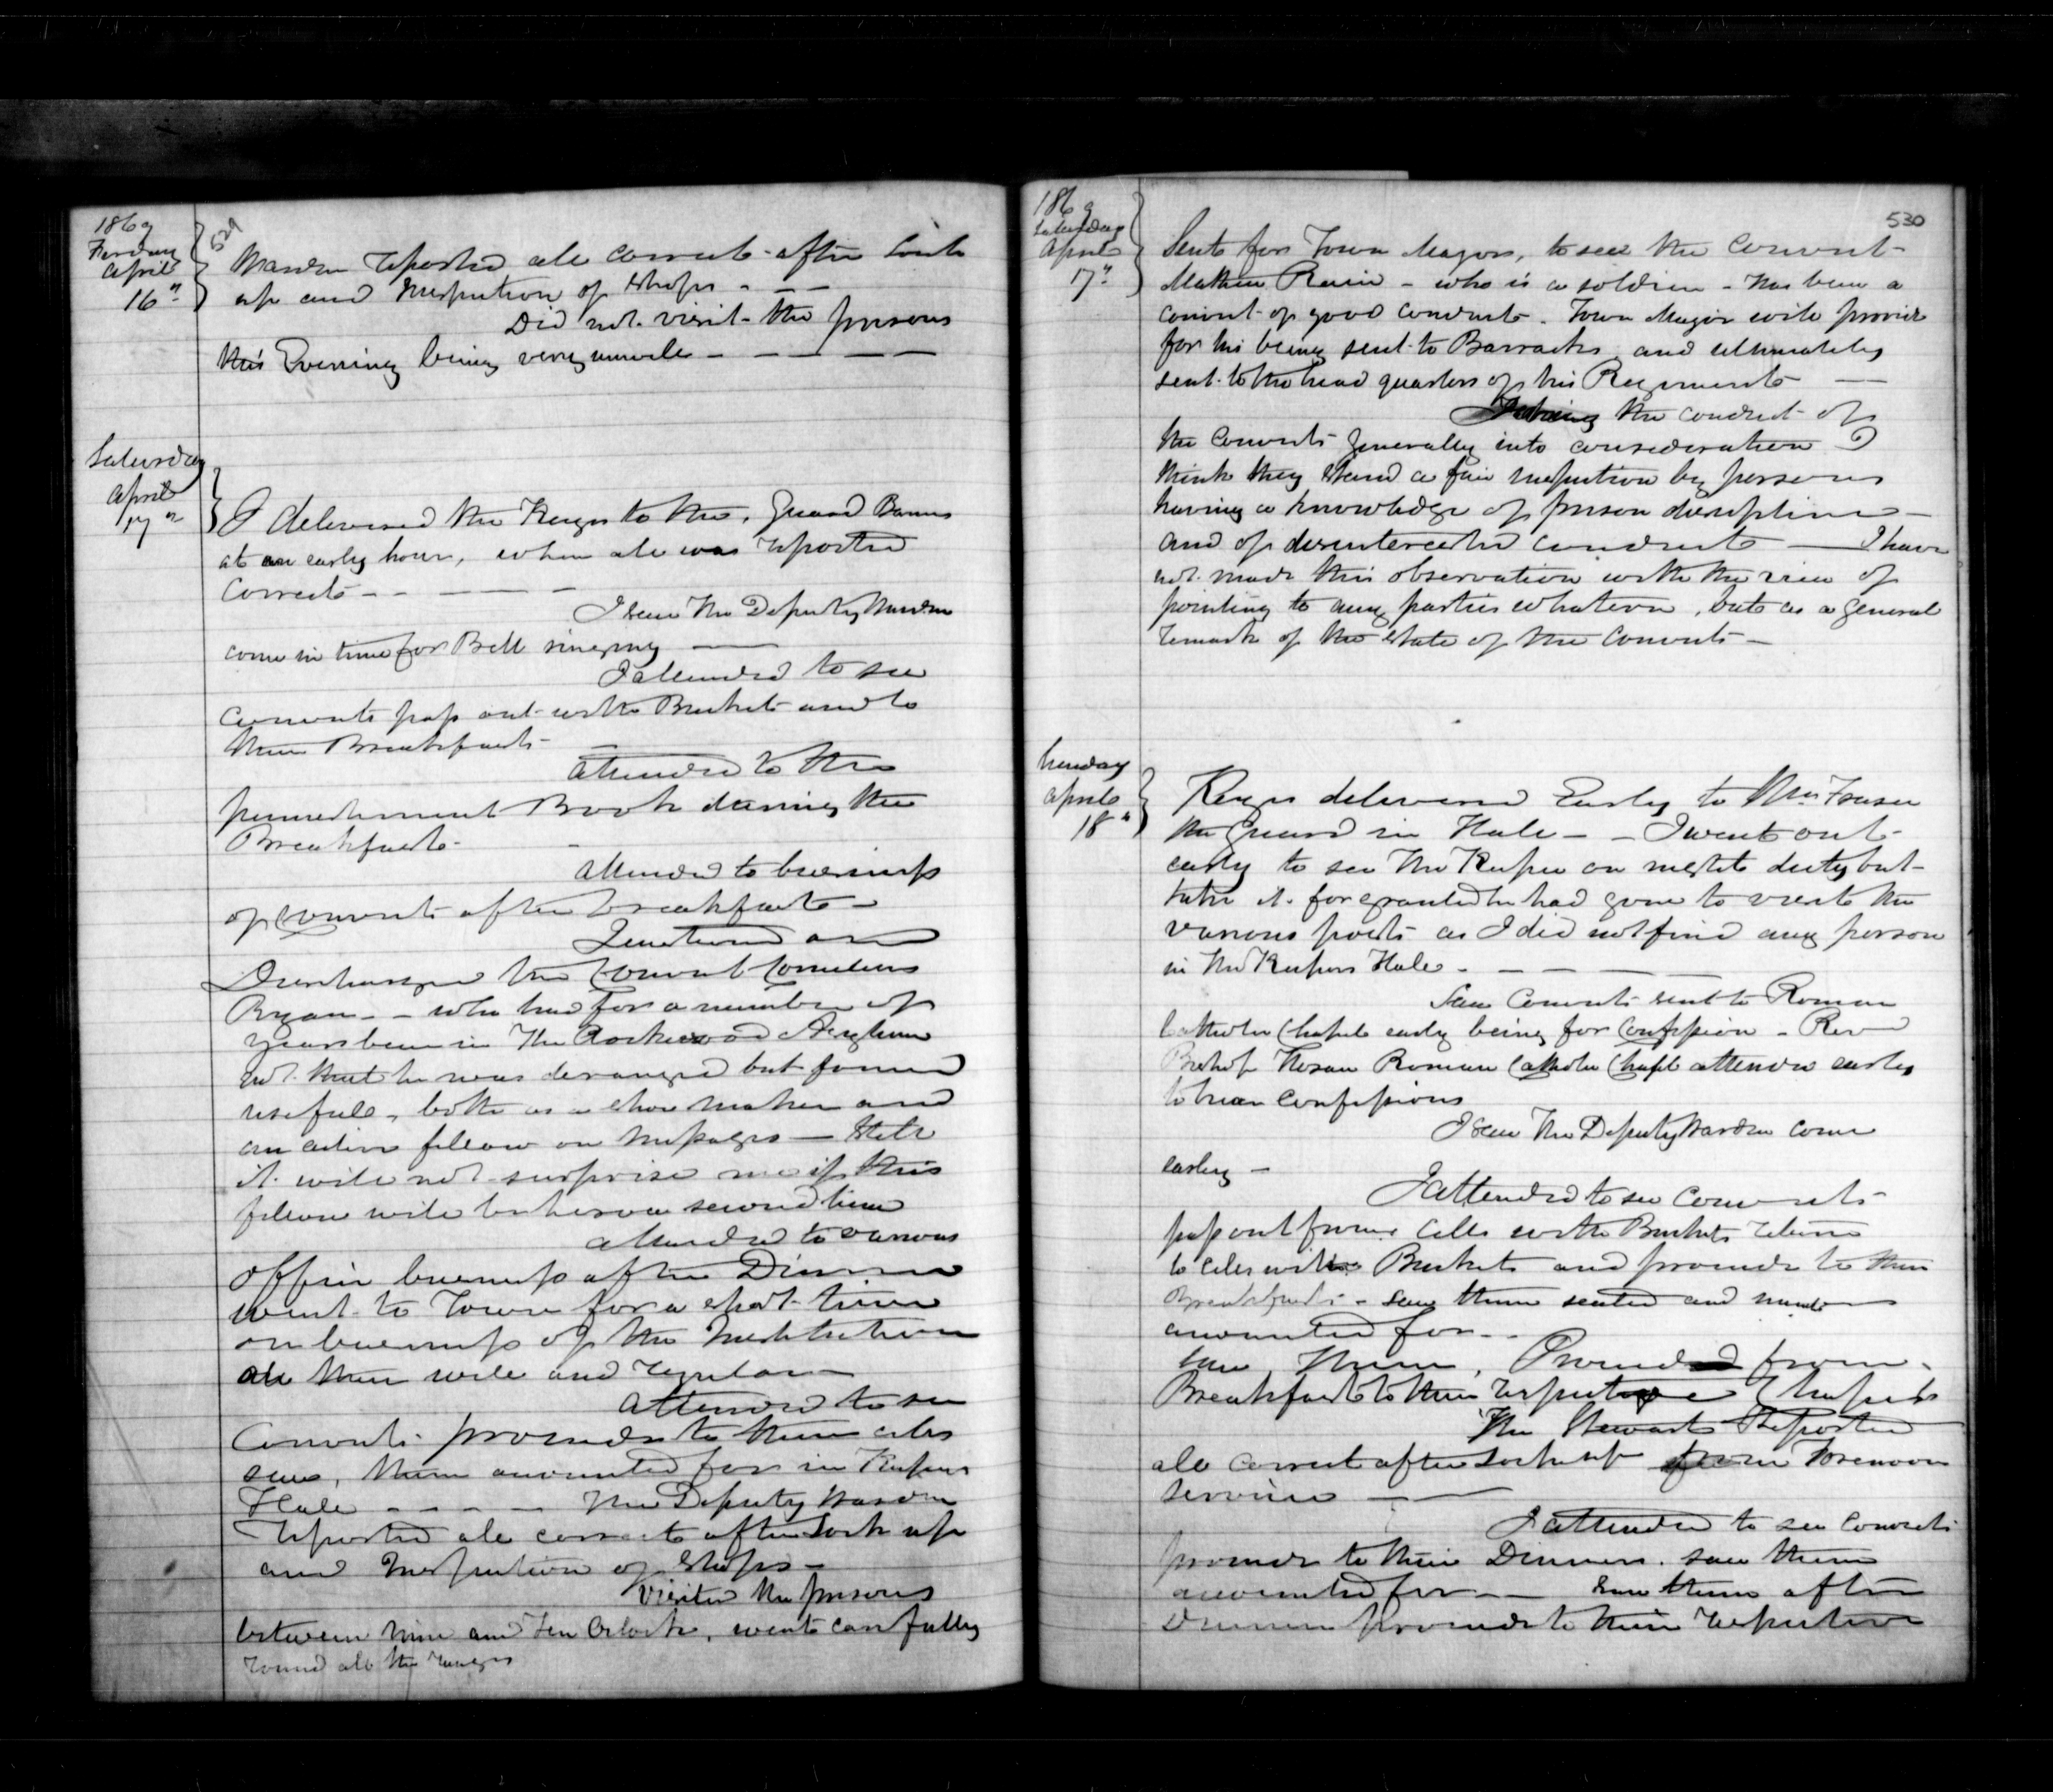 1869
Friday
April
16"
529
Warden Reported all correct after Lock
up and Inspection of Shops - - -
Did not visit the prisons
this Evening being very unwell - - - -
Saturday
April
17"
I delivered the Keys to the Guard Barnes
at an early hour, when all was Reported
Correct - - - -
I seen The Deputy Warden
come in time for Bell ringing —
I attended to see
Convicts pass out with Buckets and to
their Breakfasts -
attended to the
punishment Book during the
Breakfast -
Attended to business
of Convicts after breakfast -
and
Discharged the Convict Cornelius
Ryan - - who has for a number of
years been in The Rockwood Asylum
not that he was deranged but found
useful, both as a shoe maker and
an active fellow on messages — State
it will not surprise me if this
fellow will be here a second time
attended to various
office business after Dinner
went to Town for a short time
on business of the Institution
all then well and Regular -
Attended to see
Convicts proceeds to their cells
seen them accounted for in Keepers
Hall - - - - The Deputy Warden
Reported all correct after Lock up
and Inspection of Shops -
Visited the prisons
between nine and Ten Oclock, went carefully
round all the ranges
1869
Saturday
April
17"
530
Sent for Town Mayor, to see the Convict
Mathew - who is a soldier - has been a
convict of good conduct. Town Mayor will provide
for his being sent to Barracks and ultimately
sent to the head quarters of his Regiment —
Taking the conduct of
the Convicts generally into consideration I
think they stand a fair inspection by persons
having a knowledge of prison discipline -
and of disinterested conduct — I have
not made this observation with the view of
pointing to any parties whatever, but as a general
remark of the state of the Convicts -
Sunday
April
18"
Keys delivered Early to Mr. Fraser
the Guard in Hall - - I went out
early to see The Keeper on night duty but
take it for granted he had gone to visit the
various posts as I did not find any person
in The Keepers Hall - - - -
Saw Convicts sent to Roman
Catholic Chapel early being for Confession - Rev
Bishop Horan Roman Catholic Chapl attends early
to hear Confessions
I seen The Deputy Warden come
early -
I attended to see Convicts
pass out from Cells with Buckets return
to cells with Buckets and proceeds to their
Breakfasts - saw them seated and number
accounted for - -
saw them Proceed from
Breakfast to their respective Chapels
The Steward Reported
all correct after Lock up from Forenoon
Service —
I attended to see Convicts
proceeds to their Dinners. saw them
accounted for - - Saw them after
Dinner proceeds to their respective